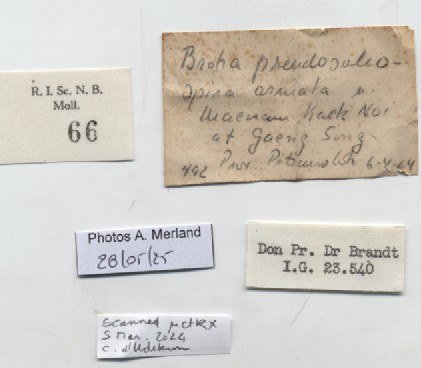 R. I. Sc. N. B.
Moll.
66
Brotia pseudosulco-
spira armata n.
Maenam Kaek Noi
at Gaeng Song
492 Prov. Pitsanulok 6-4-64
Photos A. Merland
28/05/25
Don Pr. Dr Brandt
I.G. 23.540
Scanned
5 Mar. 2024